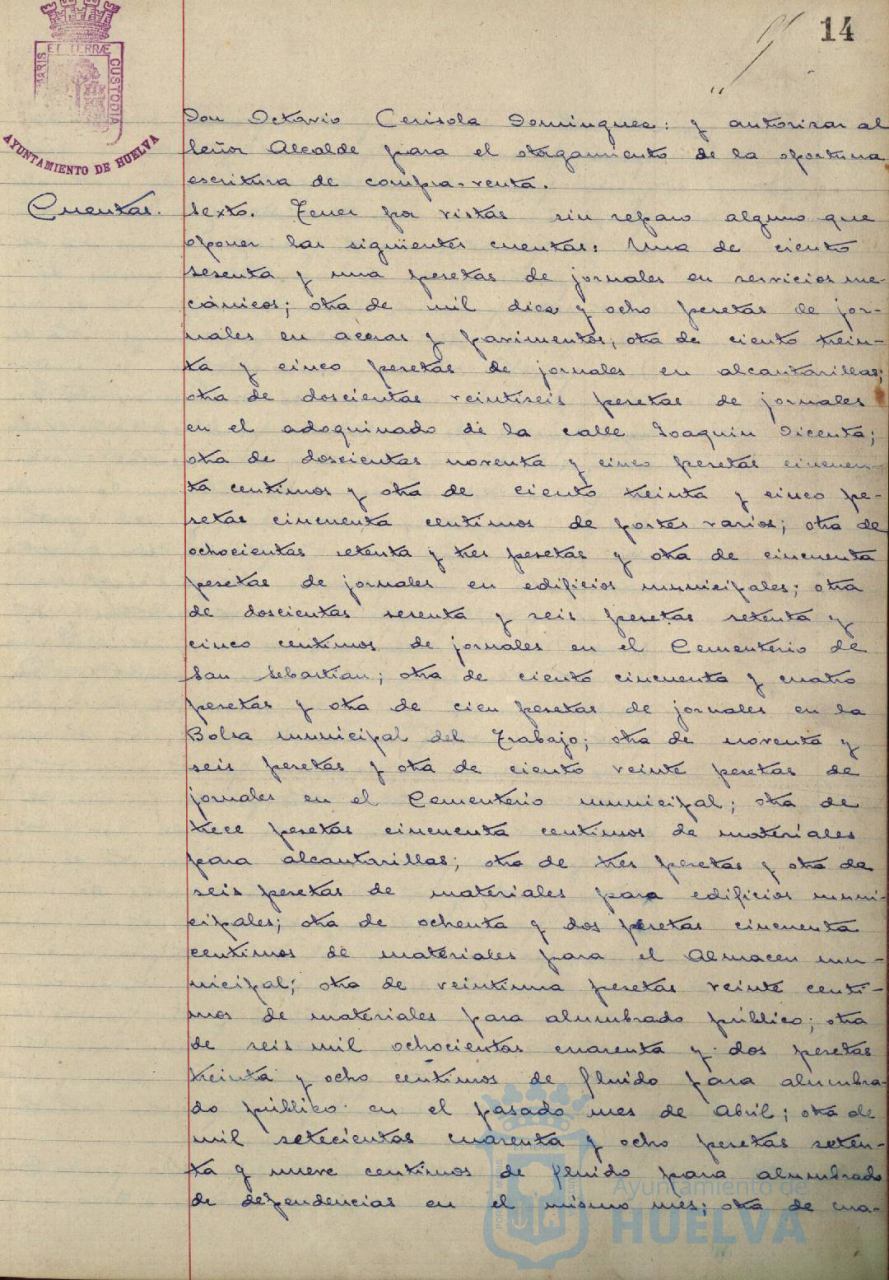 14
ET TERRÆ
MARIS
CUSTODIA
AYUNTAMIENTO DE HUELVA
Don Octavio Cerisola Dominguez: y autorizar al
Señor Alcalde para el otorgamiento de la oportuna
escritura de compra-venta.
Cuentas.
Sexto. Tener por vistas sin reparo alguno que
oponer las siguientes cuentas: Una de ciento
sesenta y una pesetas de jornales en servicios me-
cánicos; otra de mil diez y ocho pesetas de jor-
nales en aceras y pavimentos; otra de ciento trein-
ta y cinco pesetas de jornales en alcantarillas;
otra de doscientas veintiseis pesetas de jornales
en el adoquinado de la calle Joaquin Dicenta;
otra de doscientas noventa y cinco pesetas cincuen-
ta centimos y otra de ciento treinta y cinco pe-
setas cincuenta centimos de portes varios; otra de
ochocientas setenta y tres pesetas y otra de cincuenta
pesetas de jornales en edificios municipales; otra
de doscientas sesenta y seis pesetas setenta y
cinco centimos de jornales en el Cementerio de
San Sebastian; otra de ciento cincuenta y cuatro
pesetas y otra de cien pesetas de jornales en la
Bolsa municipal del Trabajo; otra de noventa y
seis pesetas y otra de ciento veinte pesetas de
jornales en el Cementerio municipal; otra de
trece pesetas cincuenta centimos de materiales
para alcantarillas; otra de tres pesetas y otra de
seis pesetas de materiales para edificios muni-
cipales; otra de ochenta y dos pesetas cincuenta
centimos de materiales para el Almacen mu-
nicipal; otra de veintiuna pesetas veinte centi-
mos de materiales para alumbrado público; otra
de seis mil ochocientas cuarenta y dos pesetas
treinta y ocho centimos de fluido para alumbra-
do público en el pasado mes de Abril; otra de
mil setecientas cuarenta y ocho pesetas seten-
ta y nueve centimos de fluido para alumbrado
de dependencias en el mismo mes; otra de cua-
Ayuntamiento de
HUELVA